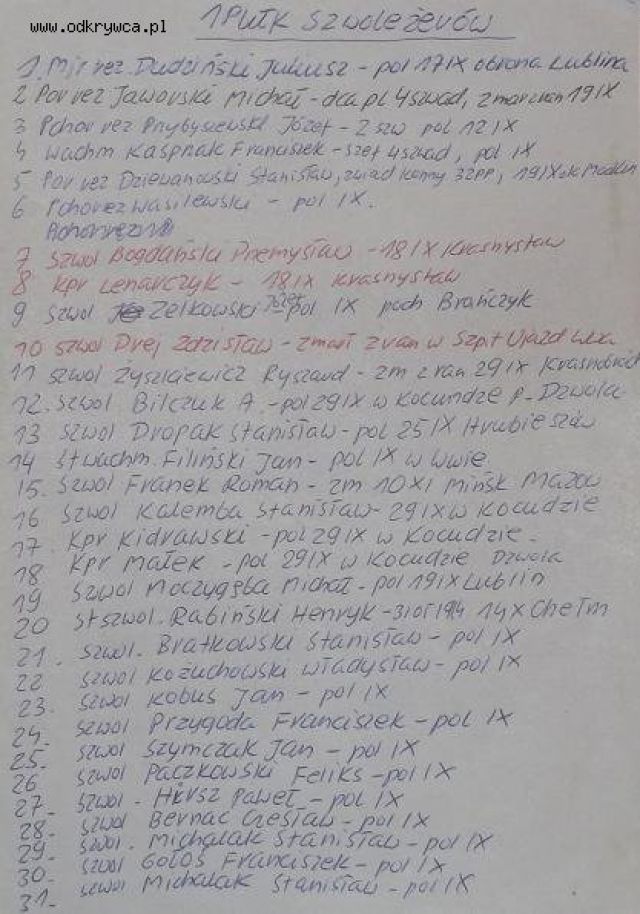 www.odkrywca.pl
1 Pułk szwoleżerów
1. Mjr rez. Dudziński Juliusz - pol 17 IX obrona Lublina
2 Por rez Jaworski Michał - dca pl 4 szwad, zmarł z ran 19 IX
3 Pchor rez Przybyszewski Józef - 2 szw pol 12 IX
4 wachm Kasprzak Franciszek - szef 4 szwad, pol IX
5 Por rez Dziewanowski Stanisław, zwiad konny 32pp, 19 IX ok Modlin
6 Pchor rez Wasilewski - pol IX.
7 szwol Bogdański Przemysław - 18 IX Krasnystaw
8 kpr Lenarczyk - 18 IX Krasnystaw
9 szwol Zelkowski Józef pol IX pod Brańczyk
10 szwol Drej Zdzisław - zmarł z ran w Szpit Ujazd
11 szwol Zyszkiewicz Ryszard - zm z ran 29 IX
12. szwol Bilczuk A. - pol 29 IX w Kocundze p. Dzwola
13 szwol Dropak Stanisław - pol 25 IX Hrubieszów
14 st wachm. Filiński Jan - pol IX w
15. szwol Franek Roman - zm 10 XI Mińsk Mazow
16 szwol Kalemba Stanisław - 29 IX w Kocudzie
17. kpr Kidrawski - pol 29 IX w Kocudzie.
18 kpr Małek - pol 29 IX w Kocudzie Dzwola
19 szwol Moczygęba Michał - pol 19 IX Lublin
20 st szwol. Rabiński Henryk - 14 X Chełm
21. szwol. Bratkowski Stanisław - pol IX
22 szwol Kożuchowski Władysław - pol IX
23. szwol Kobus Jan - pol IX
24. szwol Przygoda Franciszek - pol IX
25. szwol Szymczak Jan - pol IX
26 szwol Paczkowski Feliks - pol IX
27. szwol. Paweł - pol IX
28. szwol Bernac Czesław - pol IX
29. szwol. Michalak Stanisław - pol IX
30. szwol Gołoś Franciszek - pol IX
31. szwol Michalak Stanisław - pol IX